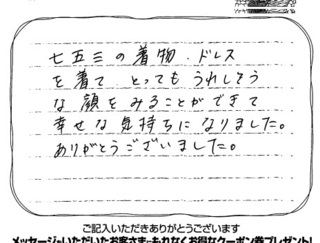 七五三の着物、ドレス
を着て とってもうれしそう
な顔をみることができて
幸せな気持ちになりました。
ありがとうございました。
ご記入いただきありがとうございます
メッセージをいただいたお客さまにもれなくお得なクーポン券プレゼント!